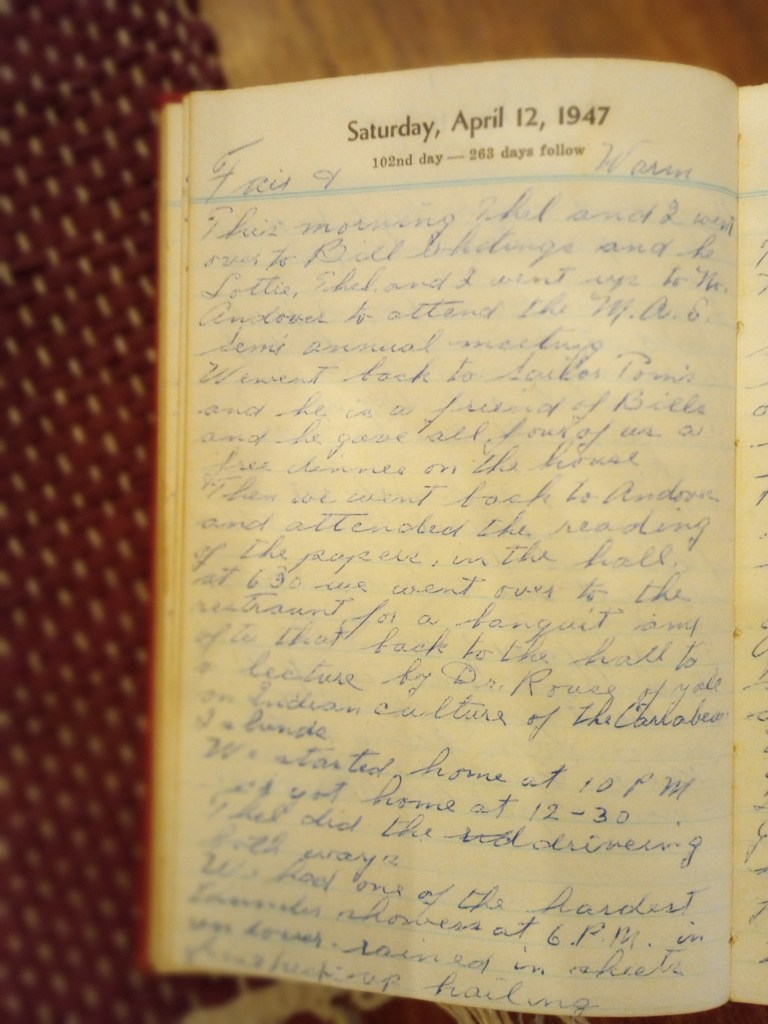 Saturday, April 12, 1947
102nd day — 263 days follow
Fair & Warm
This morning Thel and I went
over to Bill Whitings and he
Lottie, Thel and I went up to No.
Andover to attend the M. A. S.
Semi annual meeting
We went back to Sailor Tom's
and he is a friend of Bills
and he gave all four of us a
free dinner on the house
Then we went back to Andover
and attended the reading
of the papers, in the hall.
at 630 we went over to the
restraunt for a banquit and
after that back to the hall to
a lecture by Dr. Rouse of yale
on Indian culture of the Carrabean
Islands
We started home at 10 P M
got home at 12-30
Thel did the driveing
both ways
We had one of the hardest
thunder showers at 6. P.M. in
rained in sheets
up hailing